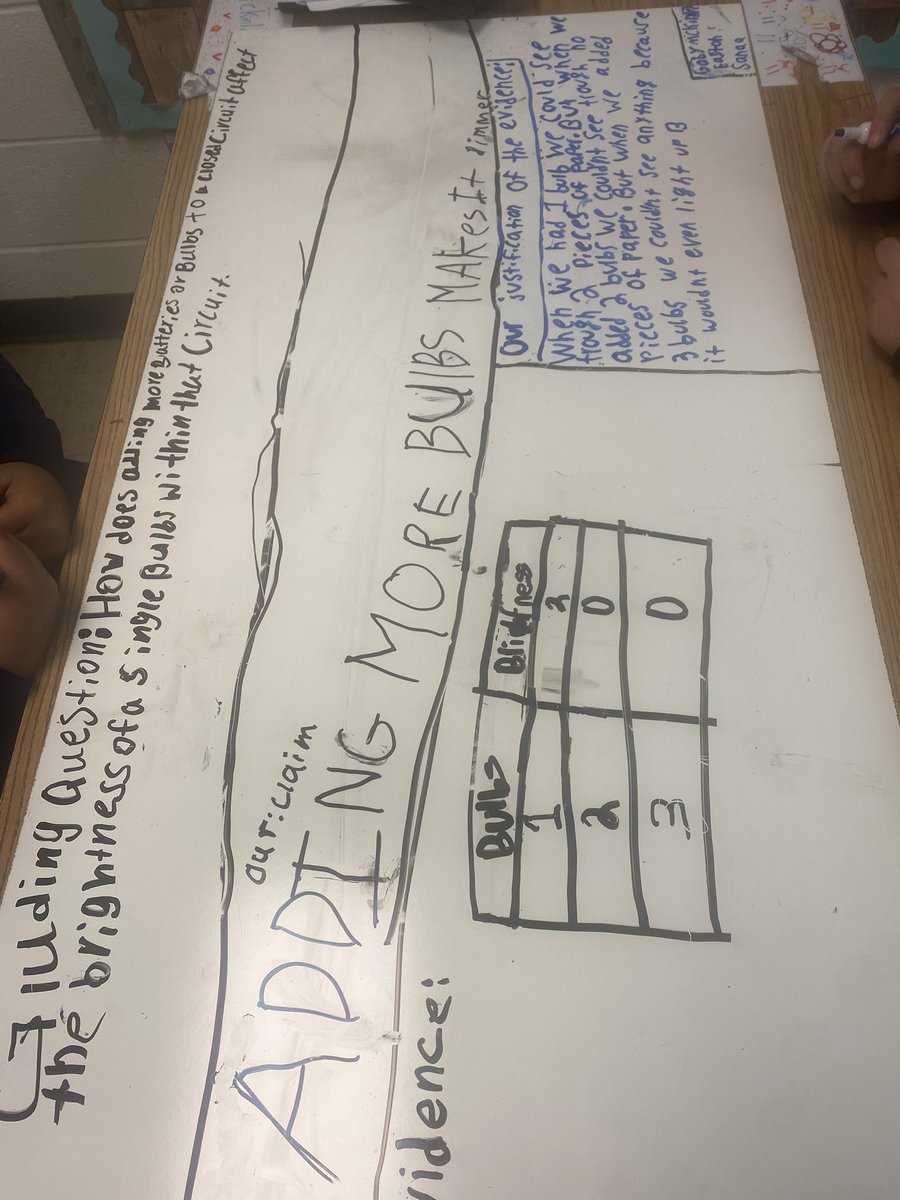 Guiding Question: How does adding more batteries or Bulbs to a closed Circuit affect
the brightness of a single Bulbs within that Circuit.
our claim
ADDING MORE BULBS MAKES It dimmer
vidence:
Bulbs Britness
1 2
2 0
3 0
Our justification of the evidence:
When we had 1 bulb we could see
trough 2 pieces of paper. But when we
added 2 bulbs we couldnt see trough no
pieces of paper. But when we added
3 bulbs we couldnt see anything because
it wouldnt even light up B
Easton
Sanaa